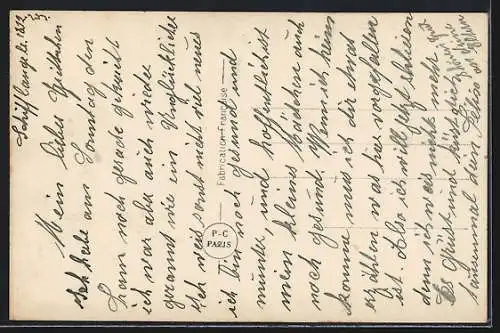 Schifflange d.
Mein lieber
Ich habe am Sonntag den
Zann noch gerade gekriegt
ich war aber auch wieder
gerannt wie ein Unglücklicher
Ich weis sonst nicht viel neues
ich bin noch gesund und
munter, und hoffentlich ist
mein kleines Mädchen auch
noch gesund. Wenn ich heim
komme muss ich dir etwas
erzählen was hier vorgefallen
ist. Also ich will jetzt schliesen
denn ich weis nicht mehr
Es Grüst und küst dich
tausendmal dein
Fabrication Française
P-C
PARIS